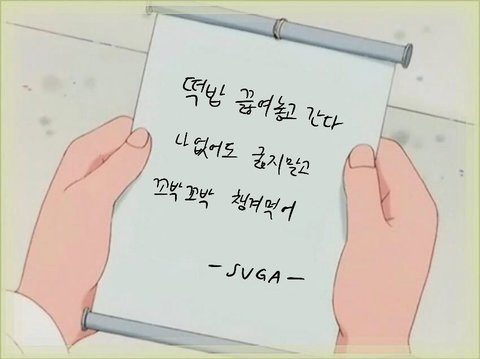 떡밥 끓여놓고 간다
나 없어도 굶지말고
꼬박꼬박 챙겨먹어
- SUGA -